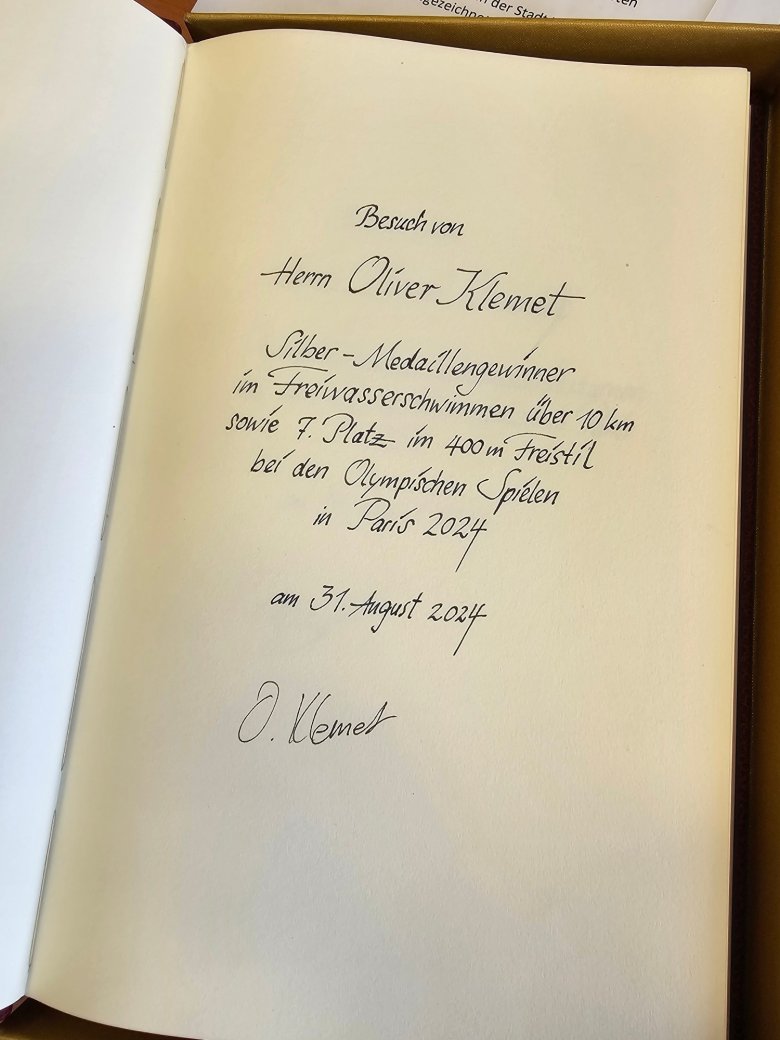 der Stadt
Besuch von
Herrn Oliver Klemet
Silber-Medaillengewinner
im Freiwasserschwimmen über 10 km
sowie 7. Platz im 400m Freistil
bei den Olympischen Spielen
in Paris 2024
am 31. August 2024
O. Klemet